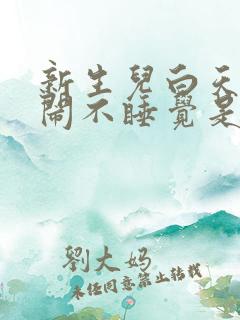 新生兒白天
鬧不睡覺是
劉大媽
未经同意禁止转载